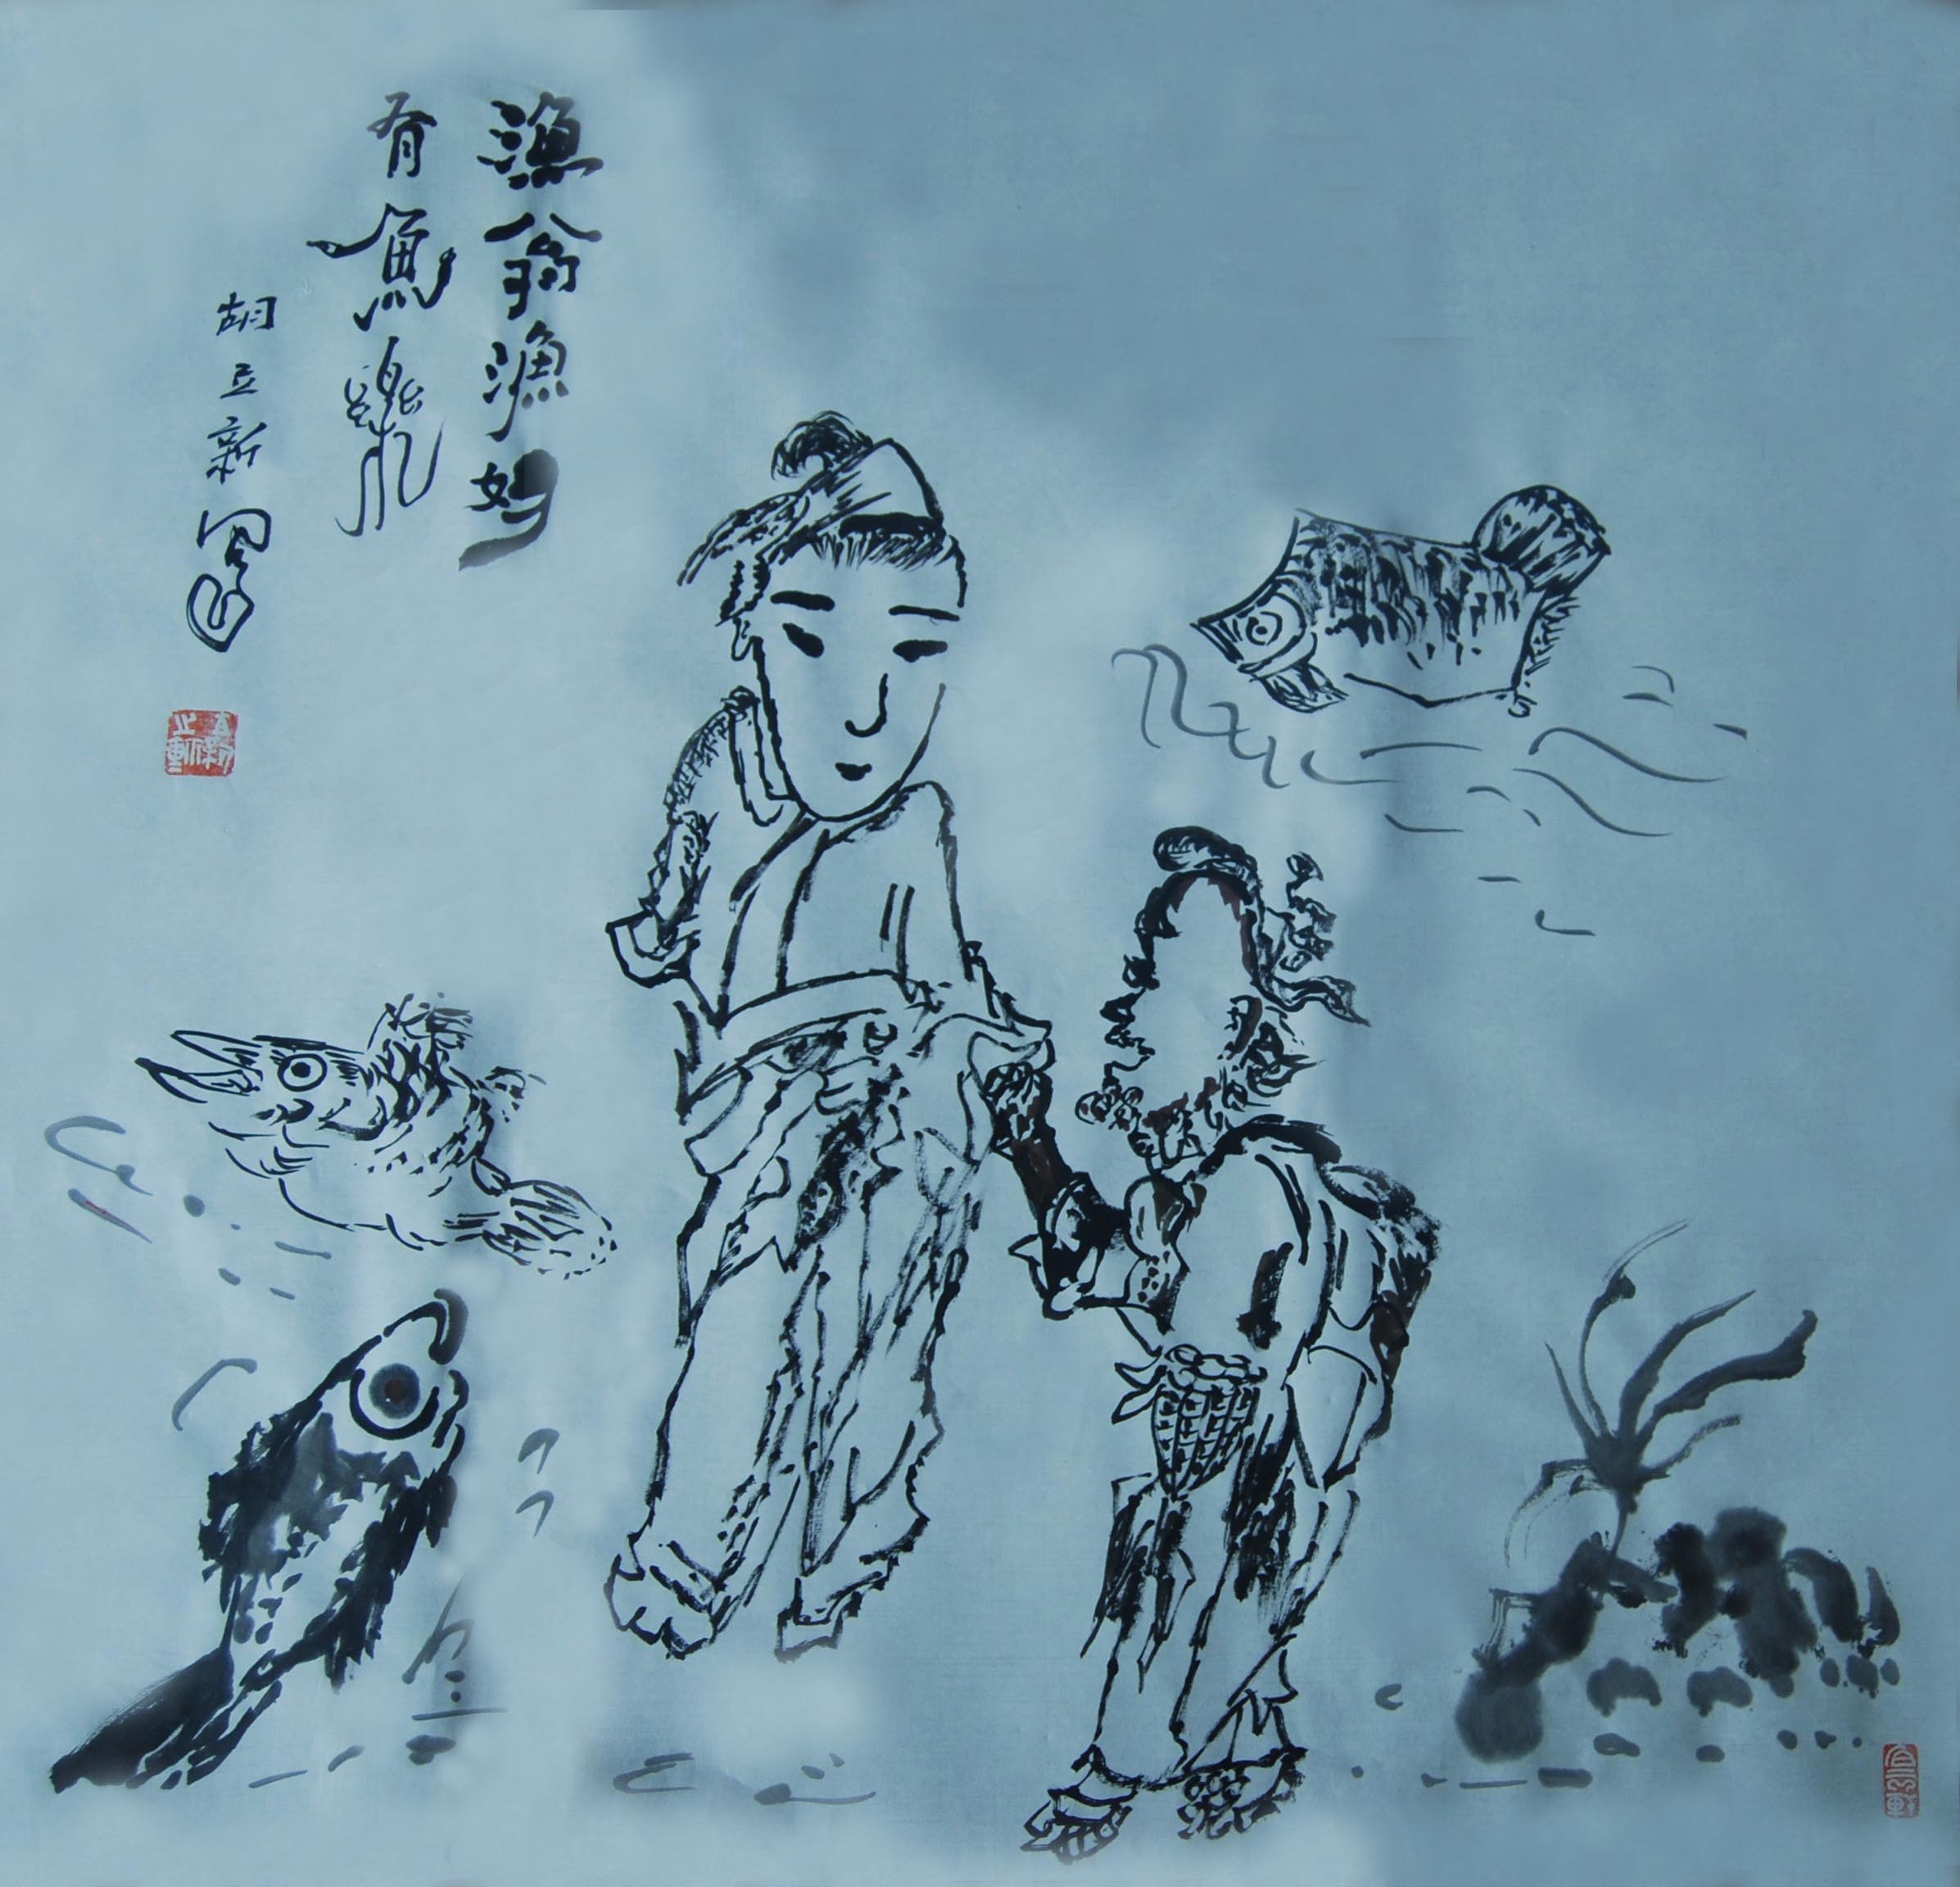 漁翁漁妙
有魚樂
胡立新寫